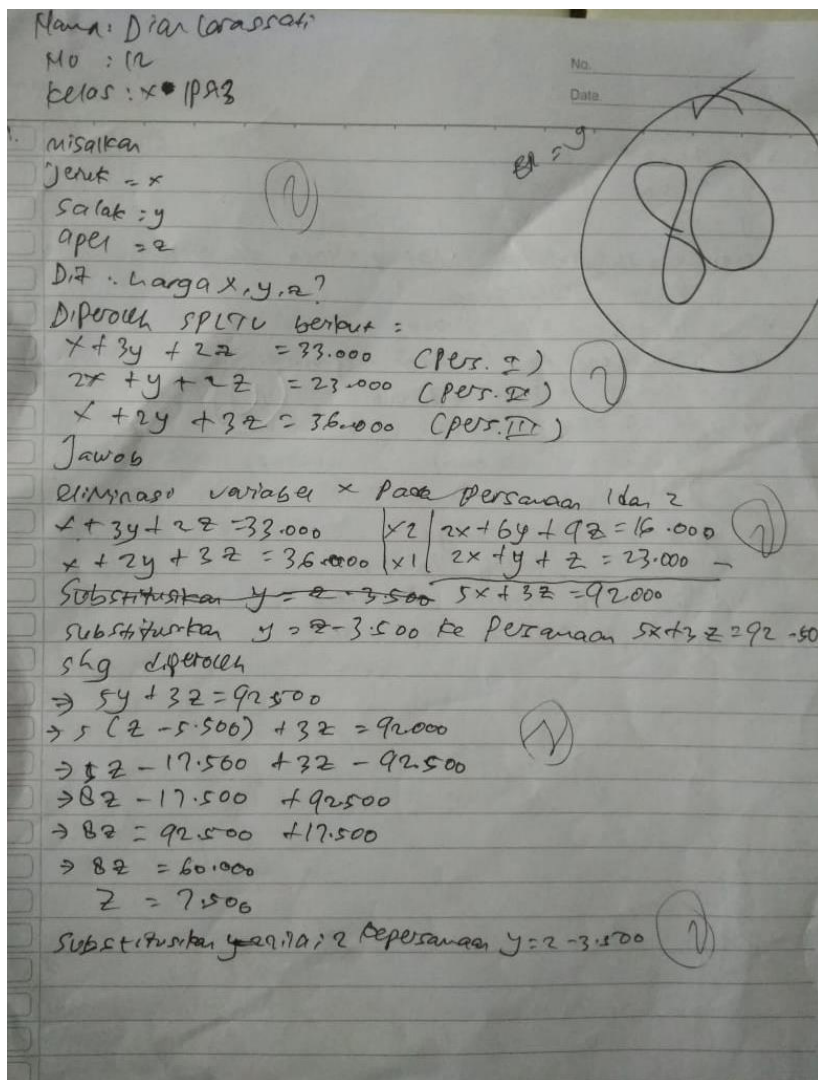 Nama: Dian Larassati
No : 12
Kelas : X IPA3
No.
Date
80
1. misalkan
jeruk = x
Salak : y
apel = z
Dit : harga x, y, z?
Diperoleh SPLTV berikut :
x + 3y + 2z = 33.000 (Pers. I)
2x + y + 2z = 23.000 (Pers. II)
x + 2y + 3z = 36.000 (pers. III)
Jawab
eliminasi variabel x pada persamaan 1 dan 2
x + 3y + 2z = 33.000 |x2| 2x + 6y + 9z = 16.000
x + 2y + 3z = 36.000 |x1| 2x + y + z = 23.000 -
Substitusikan y = z - 3.500 5x + 3z = 92.000
substitusikan y = z - 3.500 ke Persamaan 5x + 3z = 92.50
shg diperoleh
⇒ 5y + 3z = 92500
⇒ 5 (z - 5.500) + 3z = 92.000
⇒ 5z - 17.500 + 3z - 92.500
⇒ 8z - 17.500 + 92500
⇒ 8z = 92.500 + 17.500
⇒ 8z = 60.000
z = 7.500
Substitusikan nilai z kepersamaan y = z - 3.500